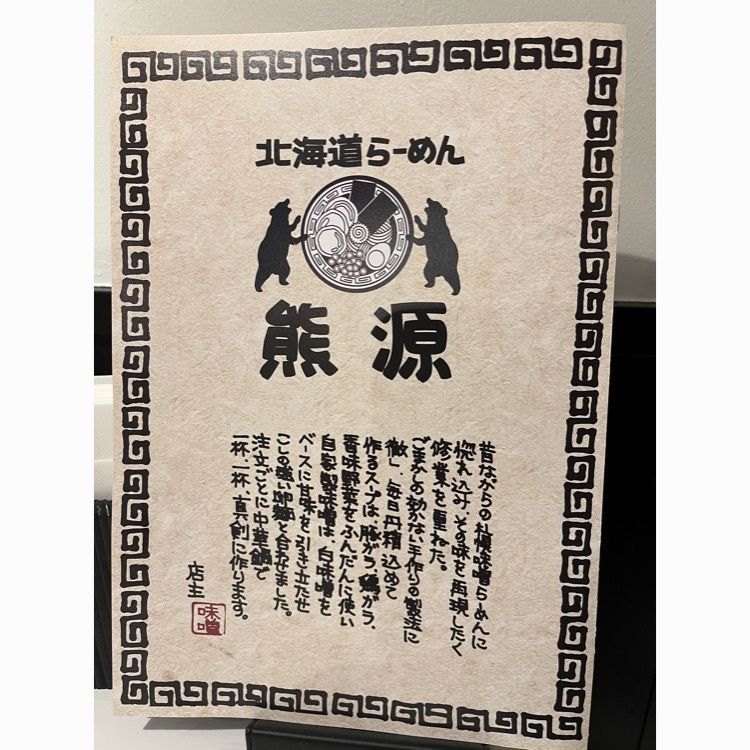 北海道らーめん
熊源
昔ながらの札幌味噌らーめんに
惚れ込み、その味を再現したく
修業を重ねた。
ごまかしの効かない手作りの製法に
徹し、毎日丹精込めて
作るスープは、豚がら、鶏がら、
香味野菜をふんだんに使い
自家製味噌は、白味噌を
ベースに甘味を引き立たせ
こしの強い卵麺と合わせました。
注文ごとに中華鍋で
一杯、一杯、真剣に作ります。
店主
味噌